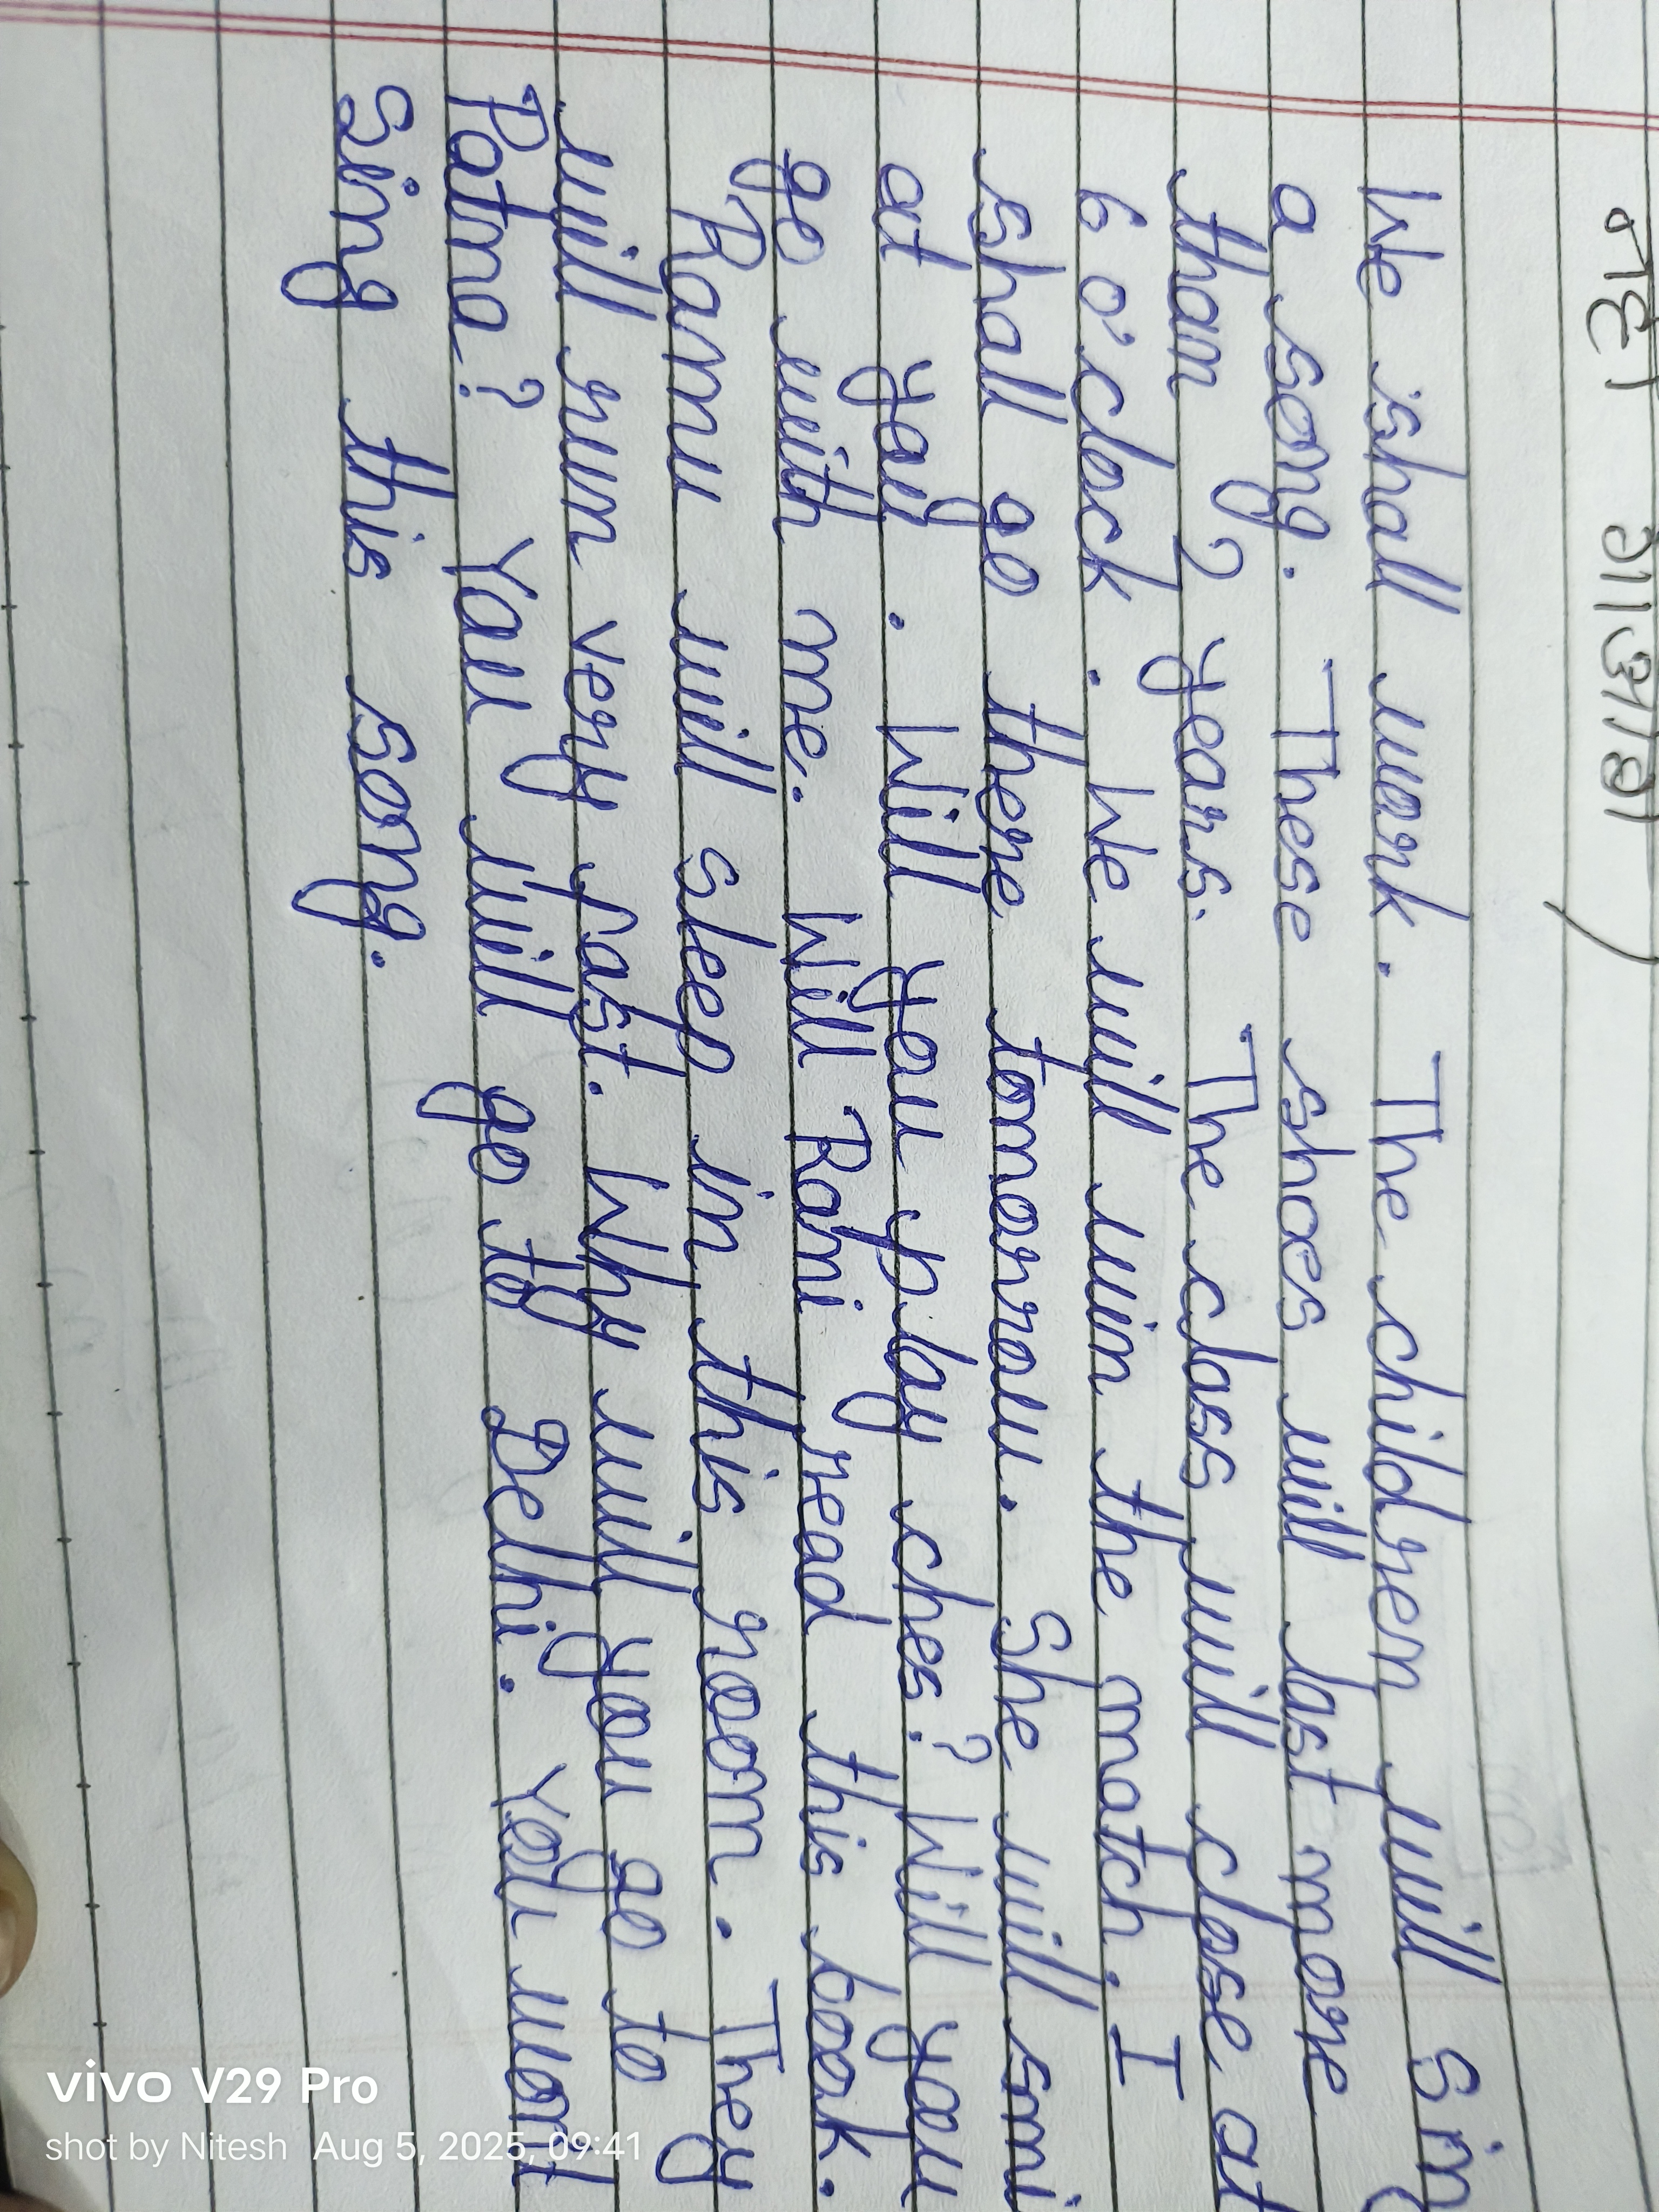 नही गाओगे)
We shall work. The children will sin
a song. These shoes will last more
than 2 years. The class will close at
6 o'clock. We will win the match. I
shall go there tomorrow. She will smi
at you. Will you play ches? Will you
go with me. Will Rani read this book.
Ramu will sleep in this room. They
will run very fast. Why will you go to
Patna? You will go to Delhi. You wont
Sing this song.
vivo V29 Pro
shot by Nitesh Aug 5, 2025, 09:41